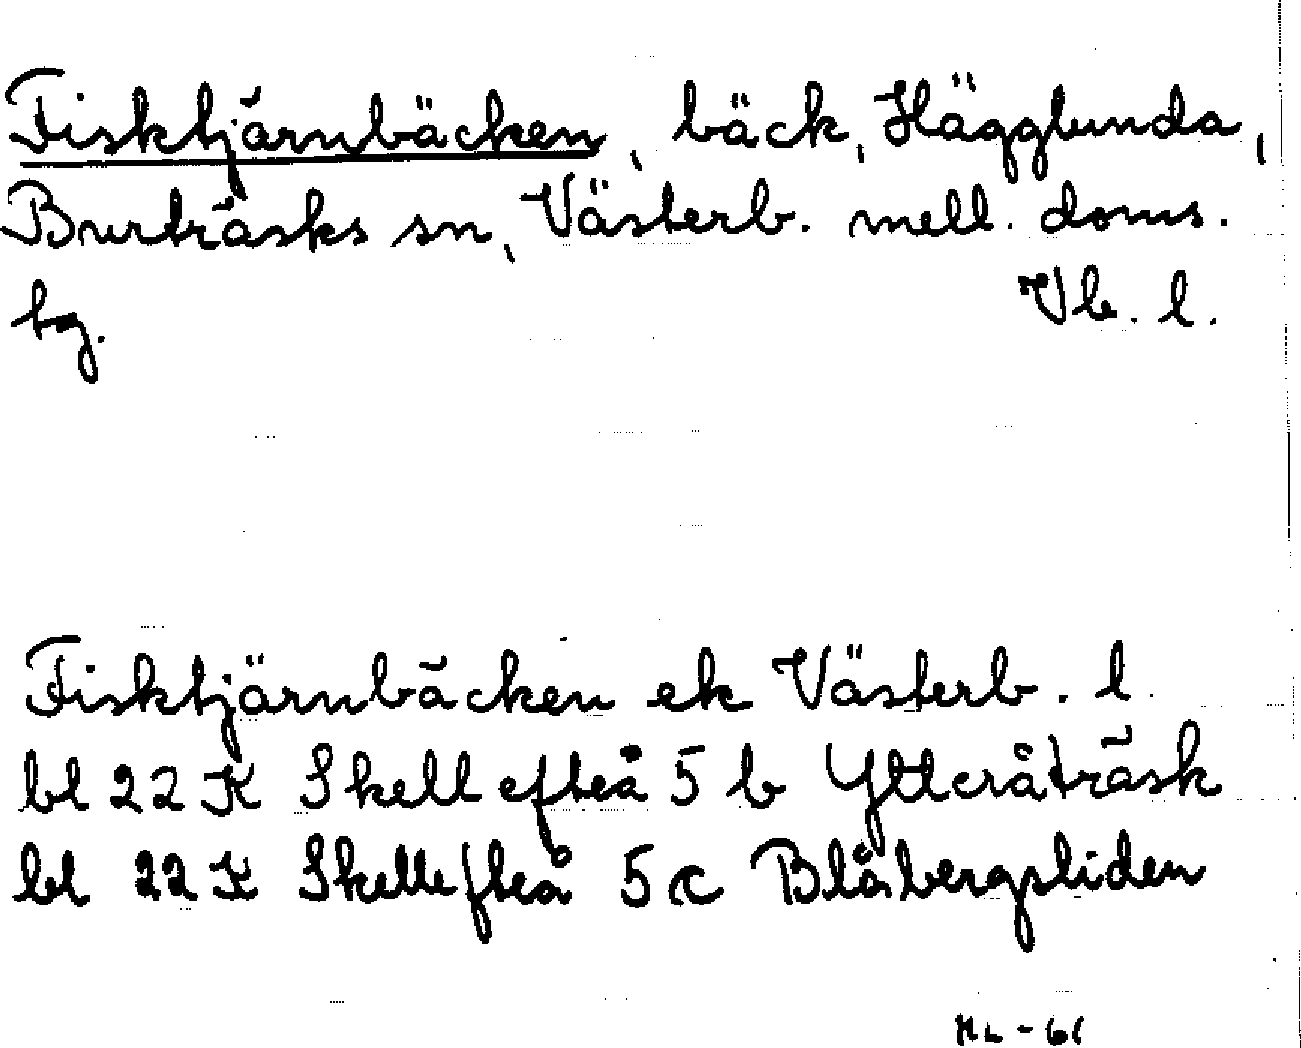 Fisktjärnbäcken, bäck, Hägglunda,
Burträsks sn, Västerb. mell. doms.
bg. Vb. l.
Fisktjärnbäcken ek Västerb. l.
bl 22 K Skellefteå 5 b Ytteråträsk
bl 22 K Skellefteå 5 c Blåbergsliden
ML - 61